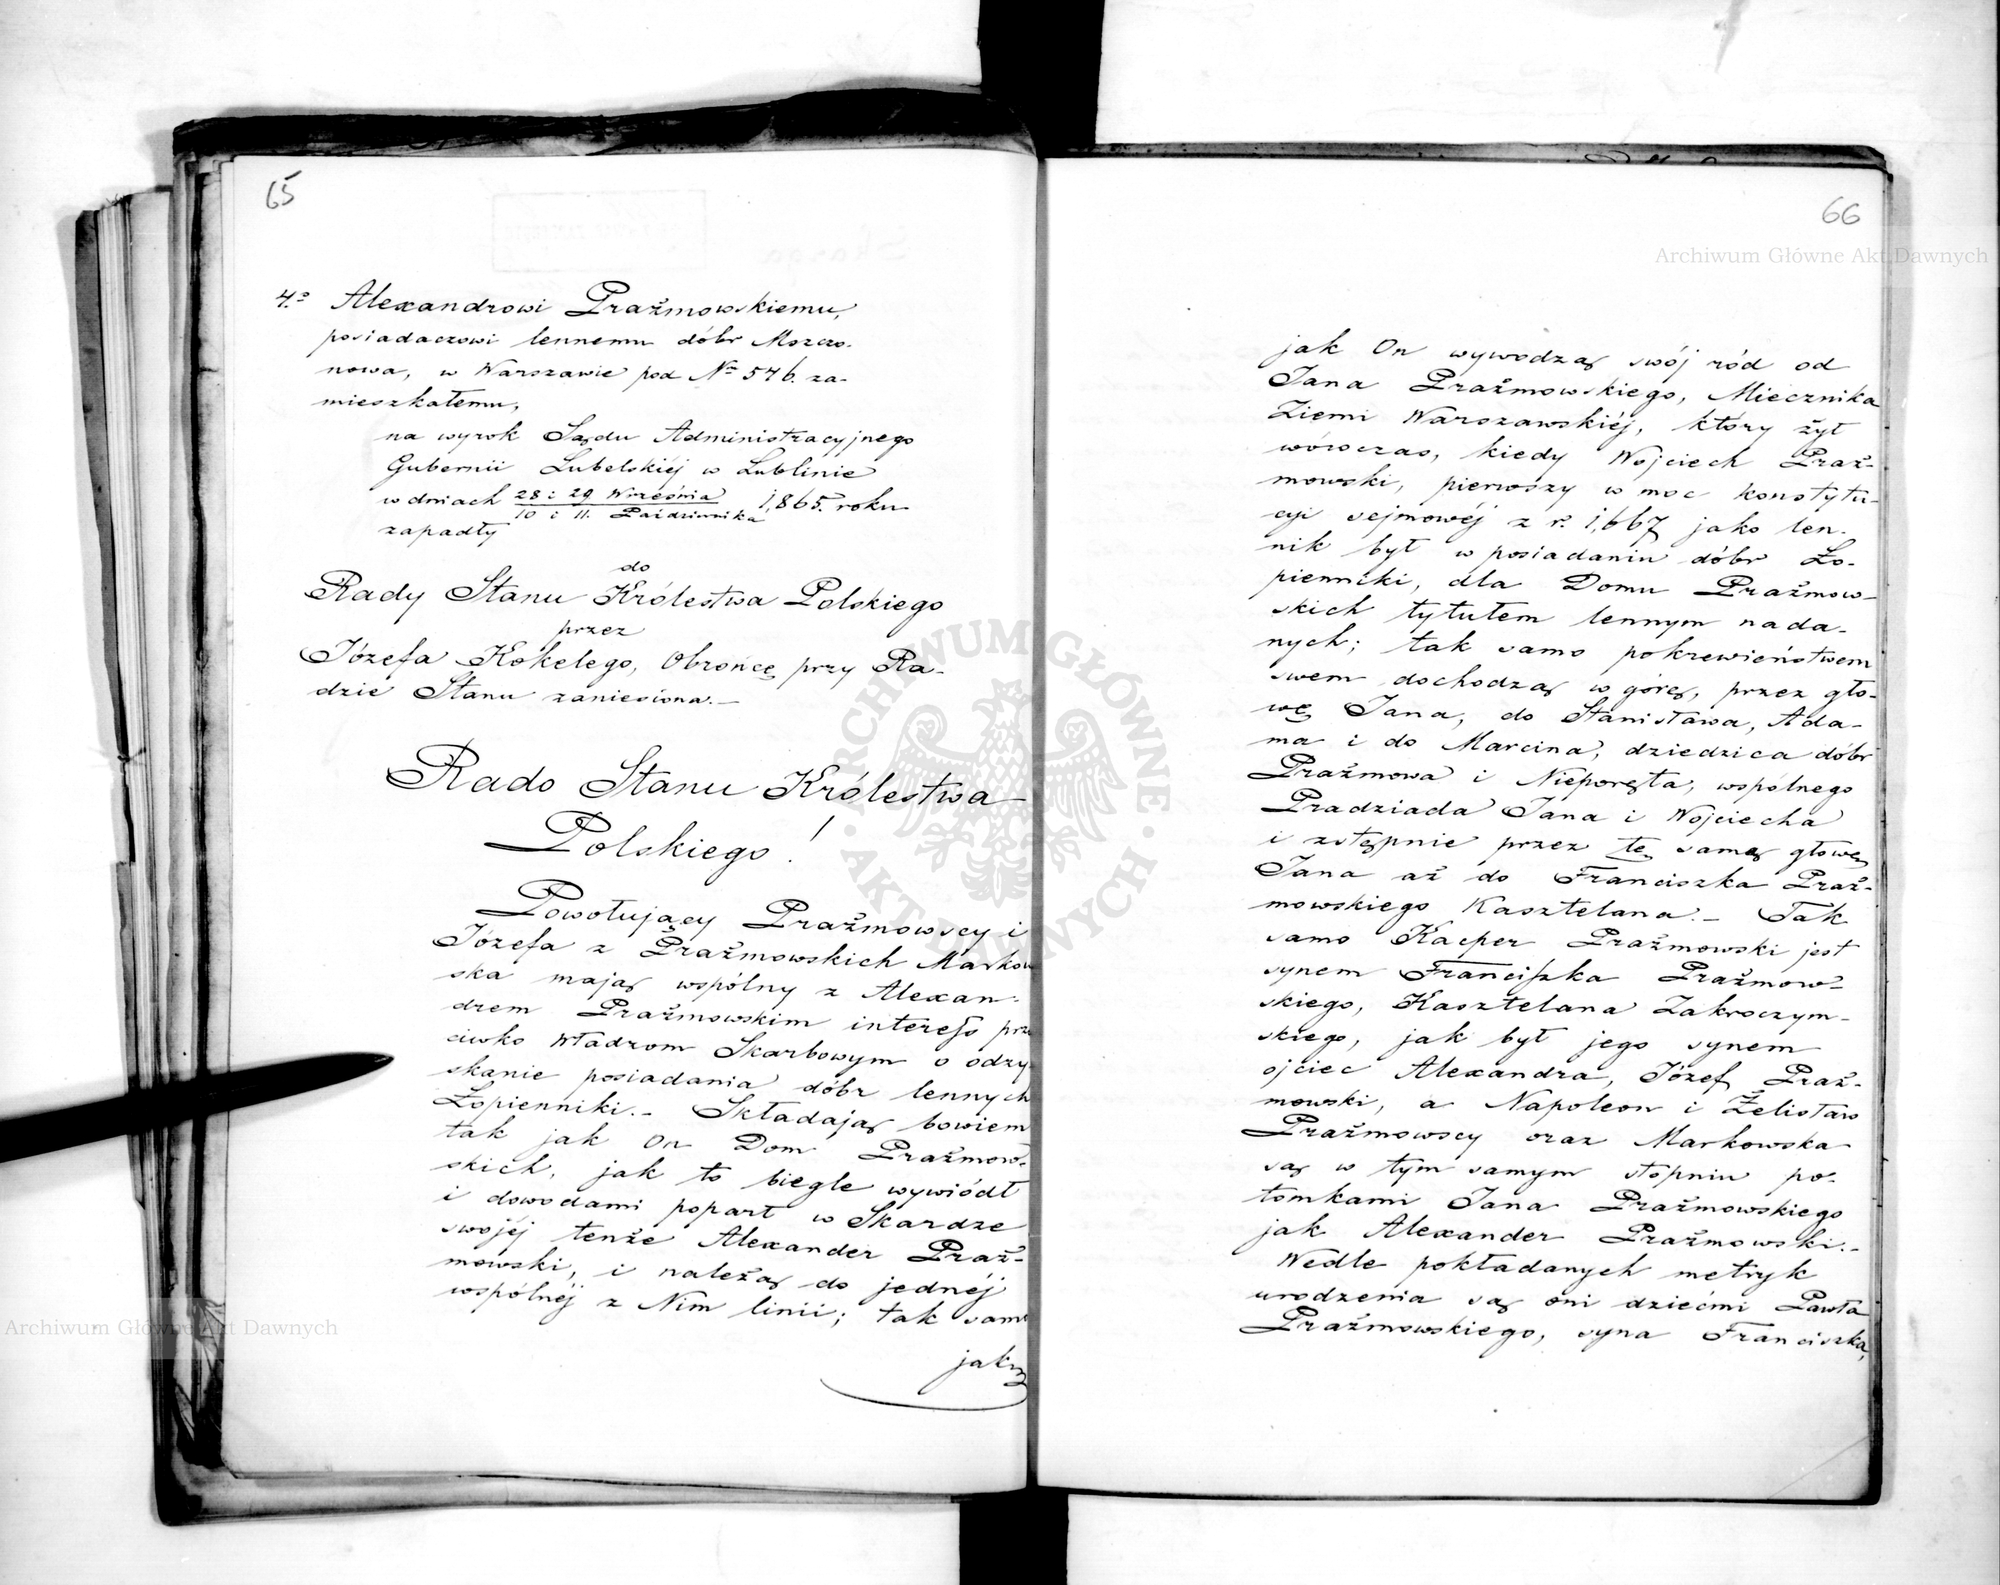 65
4.º Alexandrowi Prażmowskiemu,
posiadaczowi lennemu dóbr Moszczo-
nowa, w Warszawie pod Nr 546. za-
mieszkałemu,
na wyrok Sądu Administracyjnego
Gubernii Lubelskiéj w Lublinie
w dniach 28 i 29 Września / 10 i 11. Października 1,865. roku
zapadły
do
Rady Stanu Królestwa Polskiego
przez
Józefa Kokelego, Obrońcę przy Ra-
dzie Stanu zaniesiona.—
Rado Stanu Królestwa
Polskiego!
Powołujący Prażmowscy i
Józefa z Prażmowskich Markow
ska mają wspólny z Alexan-
drem Prażmowskim interess prze
ciwko Władzom Skarbowym o odzy-
skanie posiadania dóbr lennych
Łopienniki.— Składają bowiem
tak jak On Dom Prażmow-
skich, jak to biegle wywiódł
i dowodami poparł w Skardze
swojéj tenże Alexander Praż-
mowski, i należą do jednéj
wspólnéj z Nim linii; tak samo
jak
66
Archiwum Główne Akt Dawnych
jak On wywodzą swój ród od
Jana Prażmowskiego, Miecznika
Ziemi Warszawskiéj, który żył
wówczas, kiedy Wojciech Praż-
mowski, pierwszy w moc konstytu-
cyi sejmowéj z r. 1,667 jako len-
nik był w posiadaniu dóbr Ło-
pienniki, dla Domu Prażmow-
skich tytułem lennym nada-
nych; tak samo pokrewieństwem
swem dochodzą w górę, przez gło-
wę Jana, do Stanisława, Ada-
ma i do Marcina, dziedzica dóbr
Prażmowa i Nieporęta, wspólnego
Pradziada Jana i Wojciecha
i zstępnie przez tę samą głowę
Jana aż do Franciszka Praż-
mowskiego Kasztelana.— Tak
samo Kacper Prażmowski jest
synem Franciszka Prażmow-
skiego, Kasztelana Zakroczym-
skiego, jak był jego synem
ojciec Alexandra, Józef Praż-
mowski, a Napoleon i Żelisław
Prażmowscy oraz Markowska
są w tym samym stopniu po-
tomkami Jana Prażmowskiego
jak Alexander Prażmowski.—
Wedle pokładanych metryk
urodzenia są oni dziećmi Pawła
Prażmowskiego, syna Franciszka,
ARCHIWUM GŁÓWNE
AKT DAWNYCH
Archiwum Główne Akt Dawnych